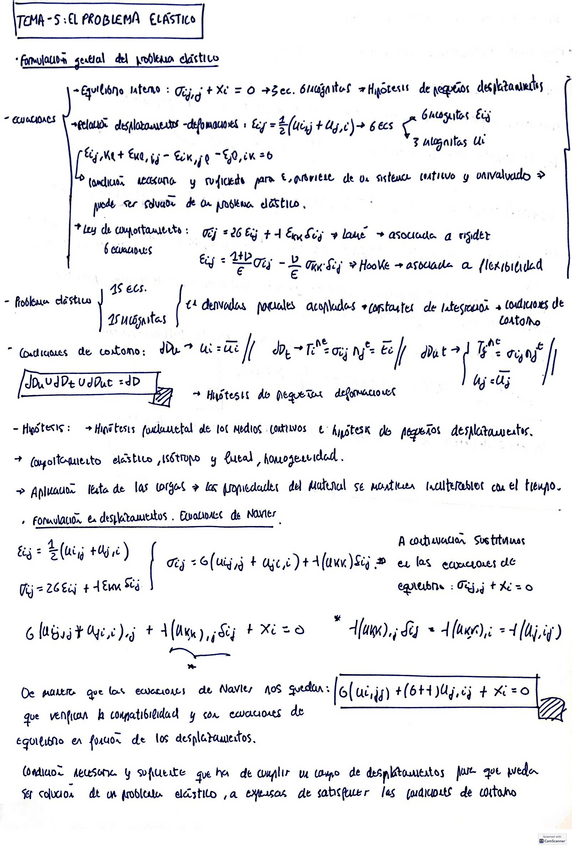 TEMA-5: EL PROBLEMA ELÁSTICO
· Formulación general del problema elástico
- ecuaciones
→ Equilibrio interno: σij,j + Xi = 0 → 3 ec. 6 incógnitas → Hipótesis de pequeños desplazamientos
→ Relación desplazamientos-deformaciones: εij = 1/2 (ui,j + uj,i) → 6 ecs
6 incógnitas εij
3 incógnitas ui
εij,kl + εkl,ij - εik,jl - εjl,ik = 0
↳ condición necesaria y suficiente para ε, proviene de un sistema continuo y univaluado ⇒
puede ser solución de un problema elástico.
→ Ley de comportamiento: σij = 2Gεij + λ εkk δij → Lamé → asociada a rigidez
6 ecuaciones
εij = (1+ν)/E σij - ν/E σkk δij ⇒ Hooke → asociada a flexibilidad
- Problema elástico
15 ecs.
15 incógnitas
en derivadas parciales acopladas → constantes de integración → condiciones de
contorno
- Condiciones de contorno: ∂Du → ui = ūi // ∂Dt → Ti = σij nj = t̄i // ∂Dut → Tj = σij nj
uj = ūj //
∂Du ∪ ∂Dt ∪ ∂Dut = ∂D
→ Hipótesis de pequeñas deformaciones
- Hipótesis: → Hipótesis fundamental de los medios continuos e hipótesis de pequeños desplazamientos.
→ Comportamiento elástico, isótropo y lineal, homogeneidad.
→ Aplicación lenta de las cargas → las propiedades del material se mantienen inalterables con el tiempo.
· Formulación en desplazamientos. Ecuaciones de Navier.
εij = 1/2 (ui,j + uj,i)
σij = 2Gεij + λ εkk δij
σij = G(ui,j + uj,i) + λ(uk,k) δij
A continuación sustituimos
en las ecuaciones de
equilibrio: σij,j + Xi = 0
G(ui,j + uj,i),j + λ(uk,k),j δij + Xi = 0
*
* λ(uk,k),j δij = λ(uk,k),i = λ(uj,ij)
De manera que las ecuaciones de Navier nos quedan: G(ui,jj) + (G+λ)uj,ij + Xi = 0
que verifican la compatibilidad y son ecuaciones de
equilibrio en función de los desplazamientos.
Condición necesaria y suficiente que ha de cumplir un campo de desplazamientos para que pueda
ser solución de un problema elástico, a expensas de satisfacer las condiciones de contorno
CamScanner